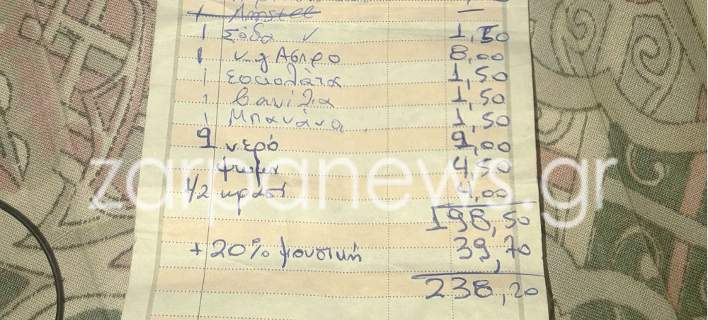 1 Amstel —
1 Σόδα ✓ 1,50
1 ν.g Ασπρο 8,00
1 Σοκολάτα 1,50
1 Βανίλια 1,50
1 Μπανάνα 1,50
9 νερό 9,00
ψωμί 4,50
1/2 κρασί 4,00
198,50
+20% μουσική 39,70
238,20
zarpanews.gr